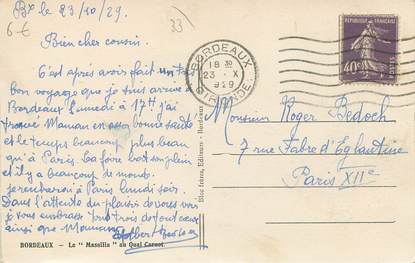 Bx le 23/10/29.
6€
33
Bien cher cousin.
C'est après avoir fait un très
bon voyage que je suis arrivé à
Bordeaux Samedi à 17h j'ai
trouvé Maman en bonne santé
et le temps beaucoup plus beau
qu'à Paris. La foire bat son plein
et il y a beaucoup de monde.
je rentrerai à Paris lundi soir.
Dans l'attente du plaisir de vous voir
je vous embrasse tout trois de tout cœur
ainsi que Maman.
BORDEAUX. - Le "Massilia" au Quai Carnot.
Bloc frères, Editeurs - Bordeaux
BORDEAUX
18 30
23 - X
929
GIRONDE
RÉPUBLIQUE FRANÇAISE
40c
POSTES
Monsieur Roger Bedoch
7 rue Fabre d'Eglantine
Paris XIIe